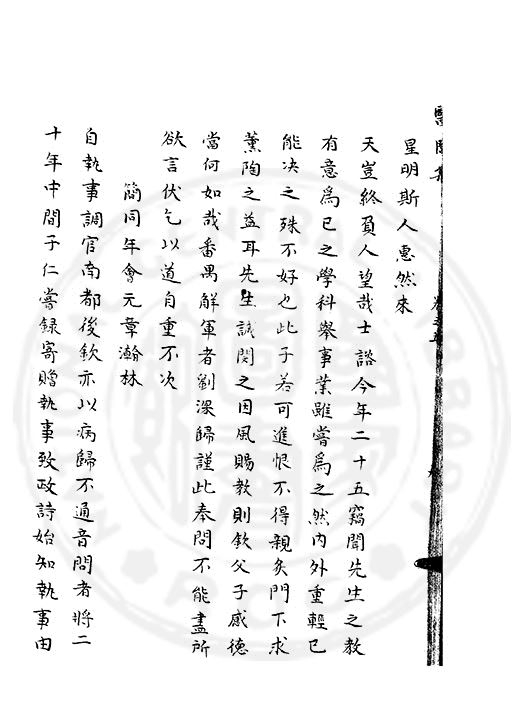 醫閭集
星明斯人惠然來
天豈終負人望哉士諮今年二十五竊聞先生之教
有意為己之學科舉事業雖嘗為之然內外重輕已
能决之殊不好也此子若可進恨不得親炙門下求
薰陶之益耳先生試閱之因風賜教則欽父子感德
當何如哉番禺解軍者劉深歸謹此奉問不能盡所
欲言伏乞以道自重不次
簡同年會元章瀚林
自執事調官南都後欽亦以病歸不通音問者將二
十年中間子仁嘗録寄贈執事致政詩始知執事由